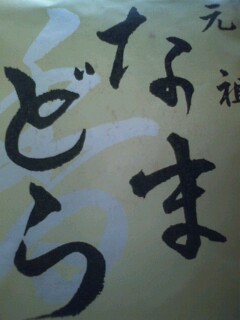 元祖
なま
どら